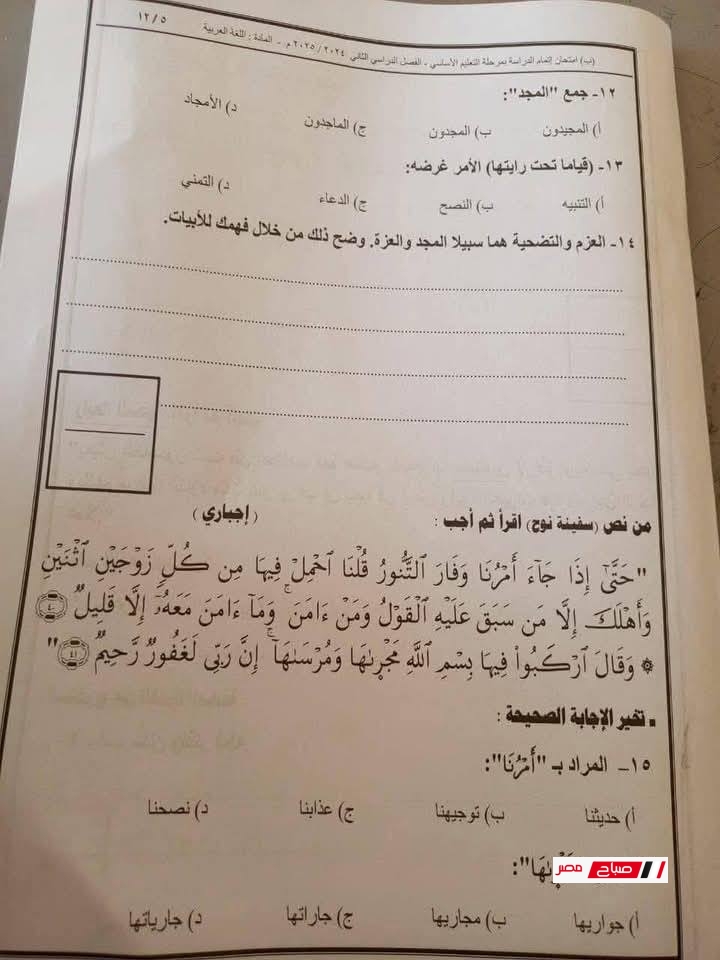 (ب) امتحان إتمام الدراسة بمرحلة التعليم الأساسي - الفصل الدراسي الثاني ٢٠٢٤ / ٢٠٢٥ م. - المادة : اللغة العربية ١٢/٥
١٢- جمع "المجد":
أ) المجيدون ب) المجدون ج) الماجدون د) الأمجاد
١٣- (قياما تحت رايتها) الأمر غرضه:
أ) التنبيه ب) النصح ج) الدعاء د) التمني
١٤- العزم والتضحية هما سبيلا المجد والعزة. وضح ذلك من خلال فهمك للأبيات.
من نص (سفينة نوح) اقرأ ثم أجب : (إجباري)
"حَتَّىٰٓ إِذَا جَآءَ أَمْرُنَا وَفَارَ ٱلتَّنُّورُ قُلْنَا ٱحْمِلْ فِيهَا مِن كُلٍّ زَوْجَيْنِ ٱثْنَيْنِ
وَأَهْلَكَ إِلَّا مَن سَبَقَ عَلَيْهِ ٱلْقَوْلُ وَمَنْ ءَامَنَ ۚ وَمَآ ءَامَنَ مَعَهُۥٓ إِلَّا قَلِيلٌ ٤٠
۞ وَقَالَ ٱرْكَبُوا۟ فِيهَا بِسْمِ ٱللَّهِ مَجْر۪ىٰهَا وَمُرْسَىٰهَآ ۚ إِنَّ رَبِّى لَغَفُورٌ رَّحِيمٌ ٤١"
▪ تخير الإجابة الصحيحة :
١٥- المراد بـ "أَمْرُنَا":
أ) حديثنا ب) توجيهنا ج) عذابنا د) نصحنا
صباح مصر
أ) جواريها ب) مجاريها ج) جاراتها د) جارياتها